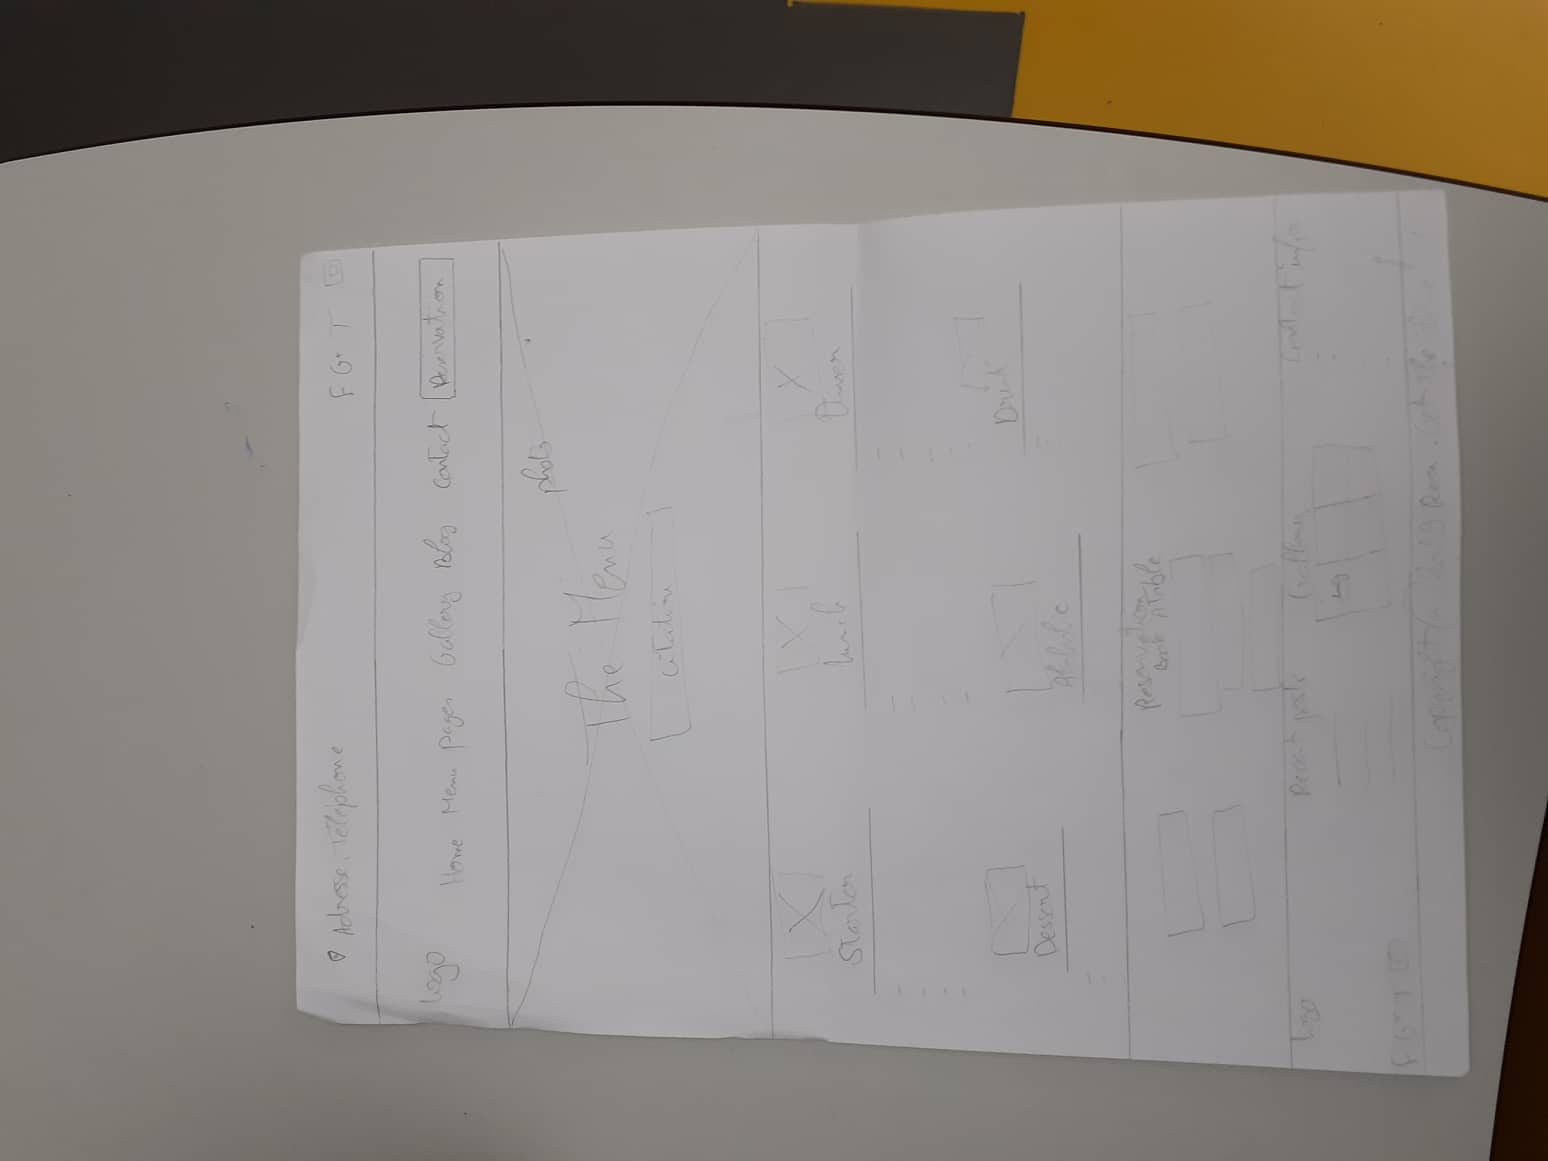 Adresse. Téléphone F G+ T
Logo Home Menu pages Gallery Blog Contact Reservation
photo
The Menu
citation
Starter Lunch Dinner
Dessert Drink
Reservation
Book A Table
Logo Recent posts Gallery Contact info
Copyright